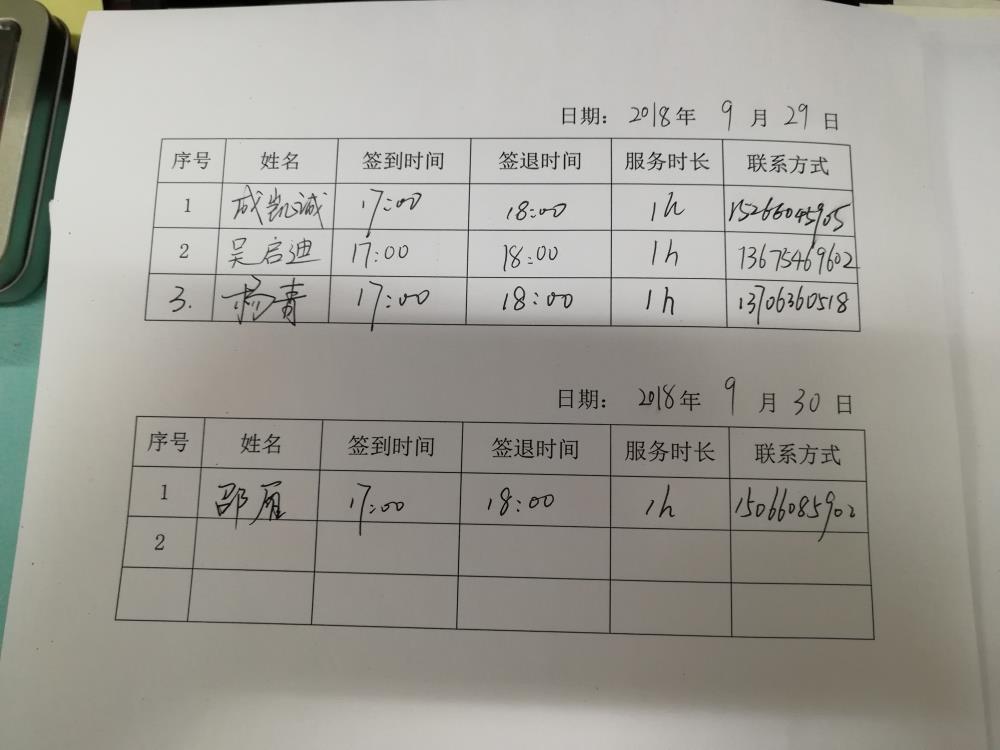 日期: 2018年 9 月 29 日
序号 姓名 签到时间 签退时间 服务时长 联系方式
1 成凯诚 17:00 18:00 1h 15266045905
2 吴启迪 17:00 18:00 1h 13675469602
3. 杨青 17:00 18:00 1h 13706360518
日期: 2018年 9 月 30 日
序号 姓名 签到时间 签退时间 服务时长 联系方式
1 邵雁 17:00 18:00 1h 15066085902
2